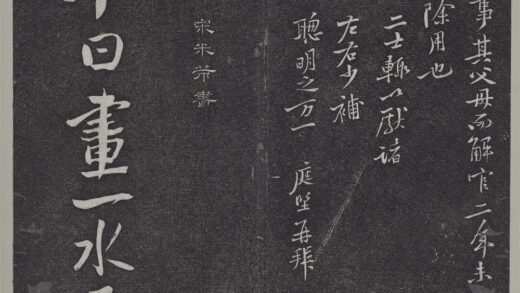 事其父母而解官二年未
除用也
二士輒以獻諸
左右少補
聰明之万一 庭堅再拜
宋米芾書
日畫一水